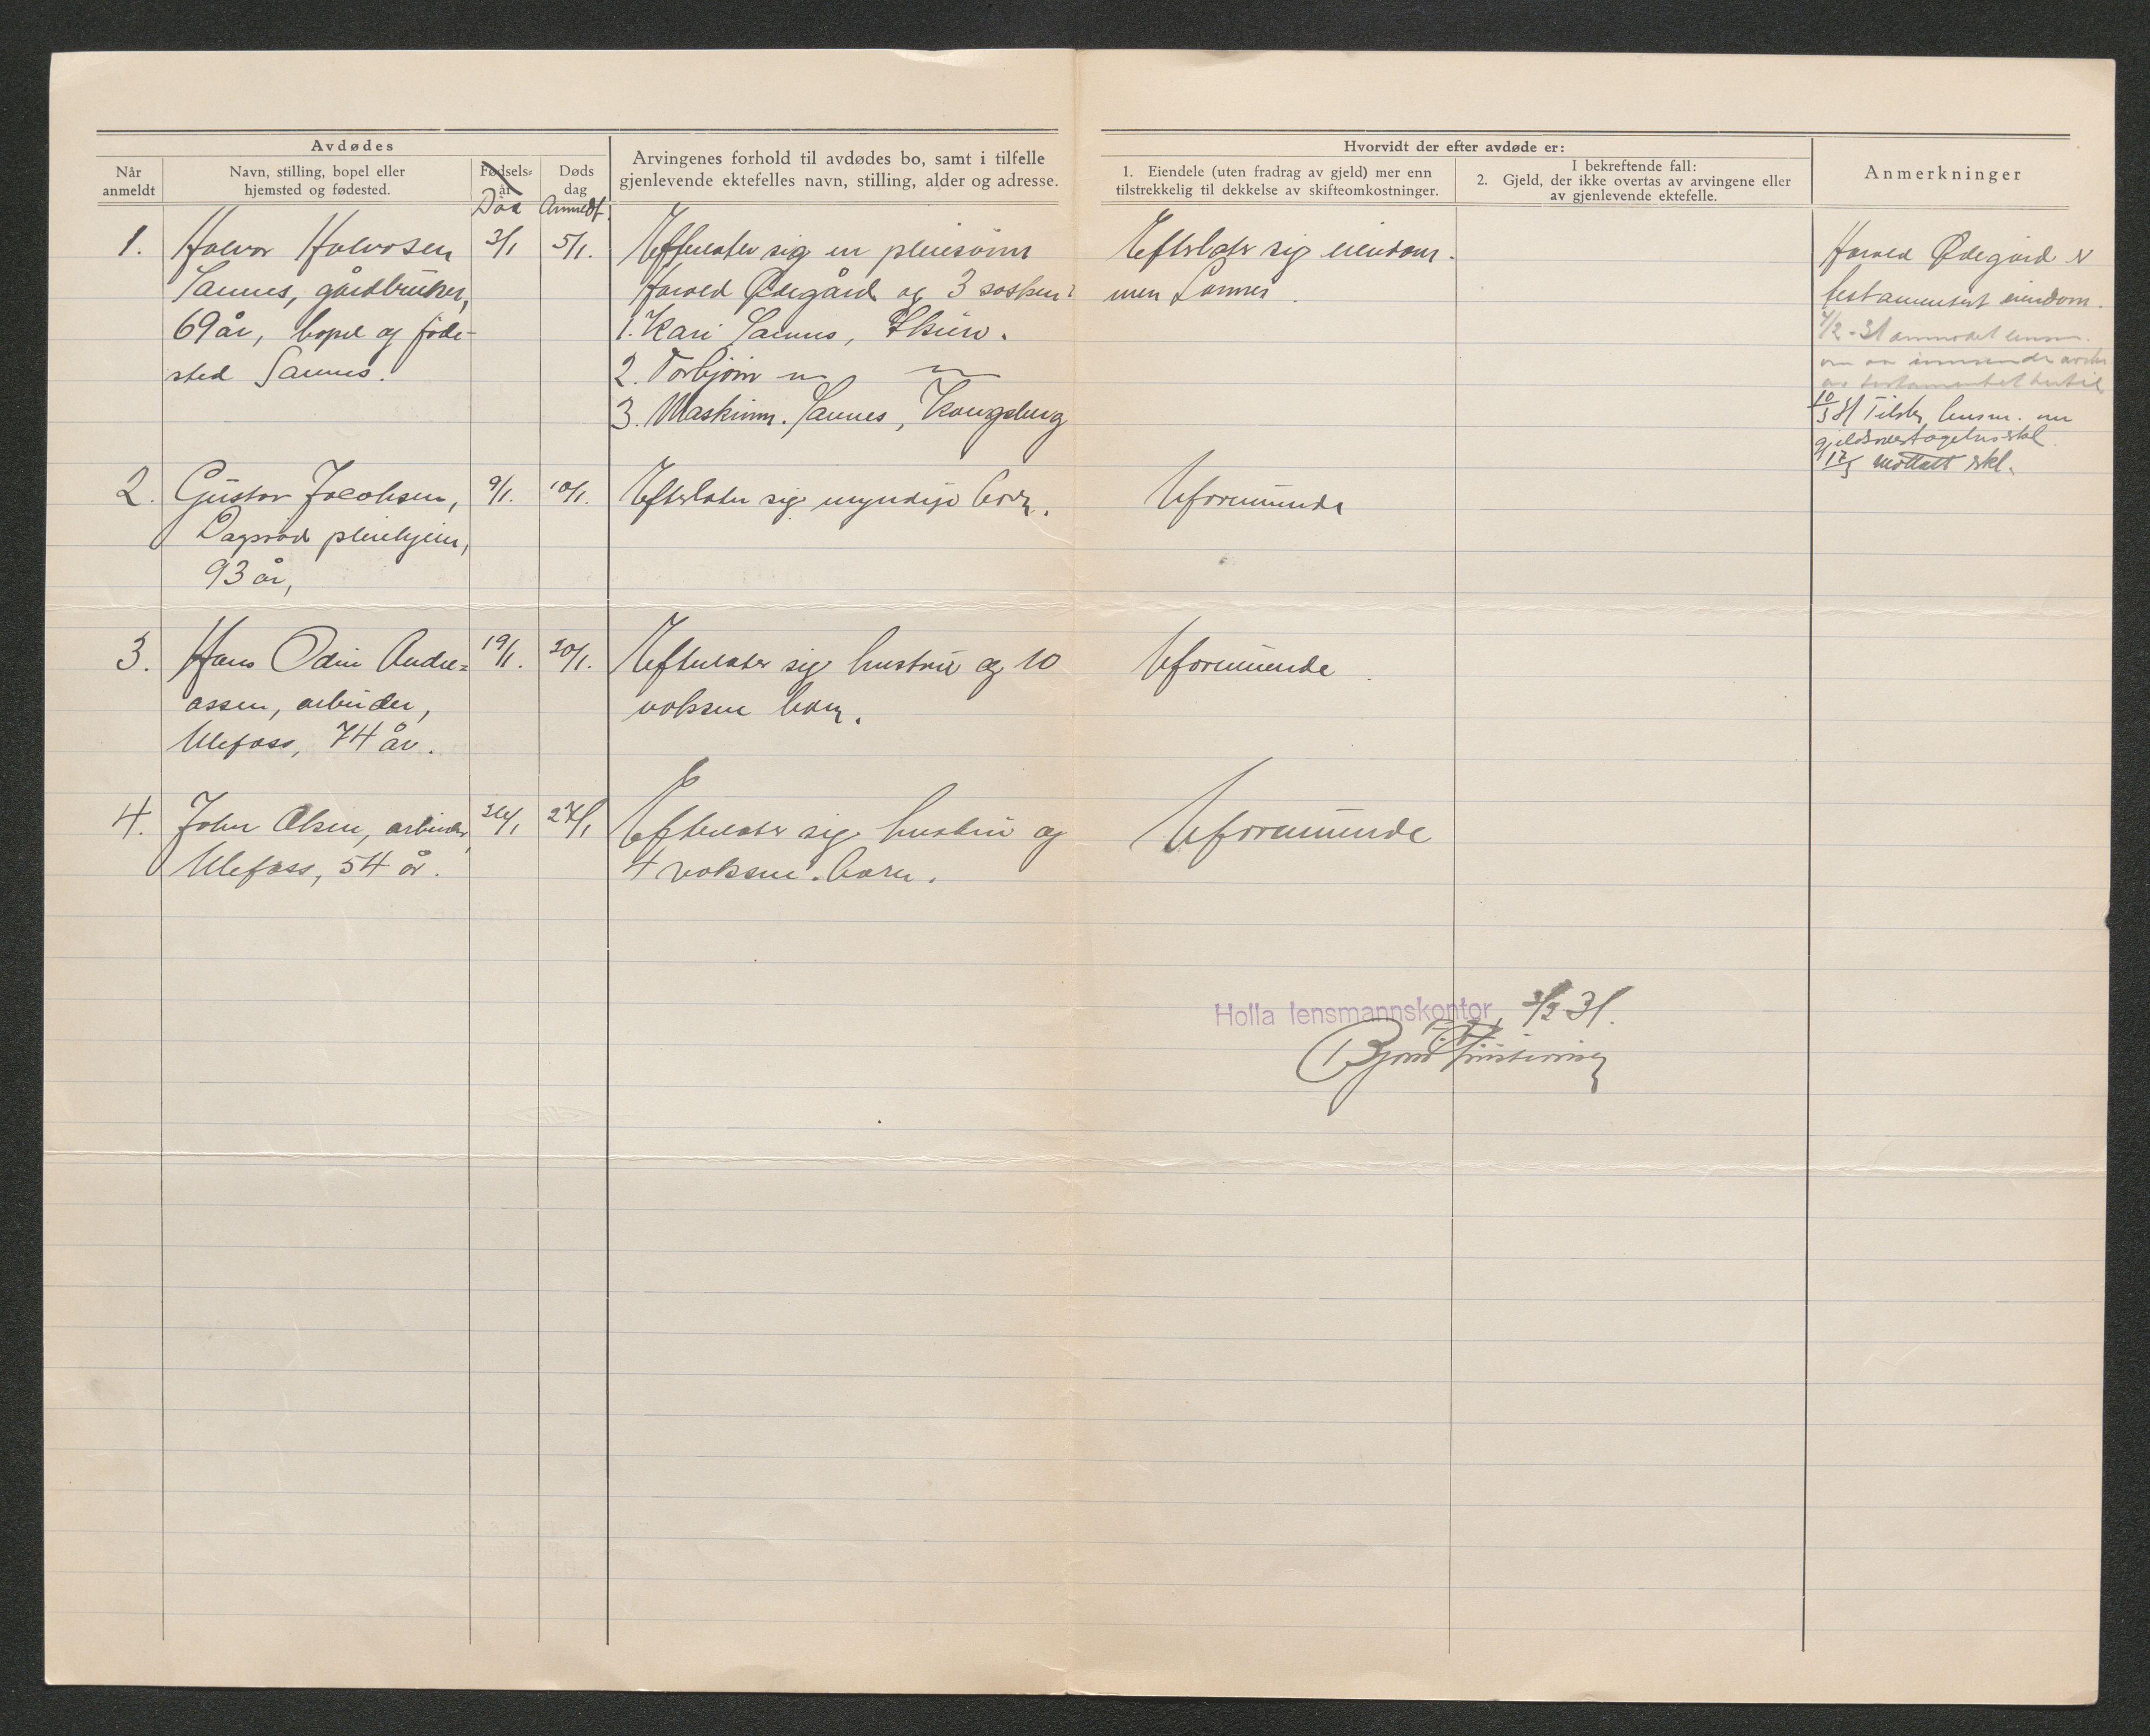 Avdødes
Når anmeldt
Navn, stilling, bopel eller hjemsted og fødested.
Fødsels-år
Død
Døds dag
Anmeldt
Arvingenes forhold til avdødes bo, samt i tilfelle
gjenlevende ektefelles navn, stilling, alder og adresse.
Hvorvidt der efter avdøde er:
1. Eiendele (uten fradrag av gjeld) mer enn
tilstrekkelig til dekkelse av skifteomkostninger.
I bekreftende fall:
2. Gjeld, der ikke overtas av arvingene eller
av gjenlevende ektefelle.
Anmerkninger
1. Halvor Halvorsen
Sannes, gårdbruker,
69 år, bopel og føde-
sted Sannes.
3/1 5/1.
Efterlater sig en pleiesønn
Harald Ødegård og 3 søsken:
1. Kari Sannes, Skien.
2. Torbjørn — " —
3. Maskinm. Sannes, Kongsberg
Efterlater sig eiendom.
men
Harald Ødegård er
testamentert eiendom.
4/2-31 anmodet lensm.
om
testamentet hertil
10/3 31 Tilskr. lensm. om
gjeldsovertagelses
17/3 mottatt skl.
2. Gustav Jacobsen,
pleiehjem,
93 år,
9/1. 10/1.
Efterlater sig myndige barn.
Uformuende
3. Hans Odin Andre-
assen, arbeider,
Ulefoss, 74 år.
19/1. 20/1.
Efterlater sig hustru og 10
voksne barn.
Uformuende
4. John Olsen, arbeider,
Ulefoss, 54 år.
26/1 27/1
Efterlater sig hustru og
4 voksne barn.
Uformuende
Holla lensmannskontor, 3/2 31.